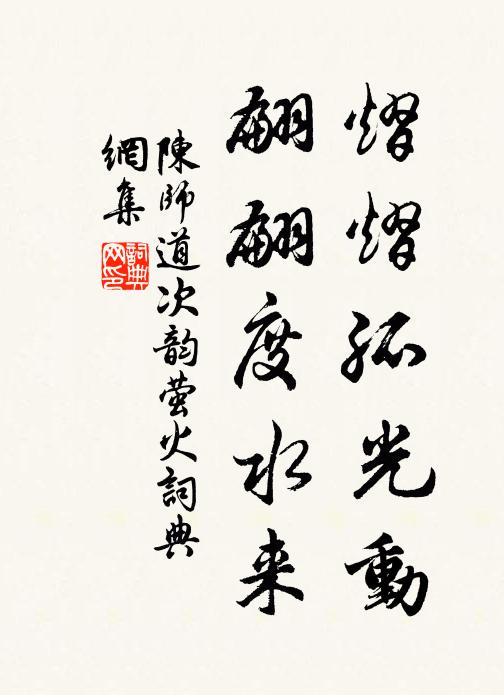 熠熠孤光動
翩翩度水来
陳師道次韵萤火詞典
網集
詞典
网印